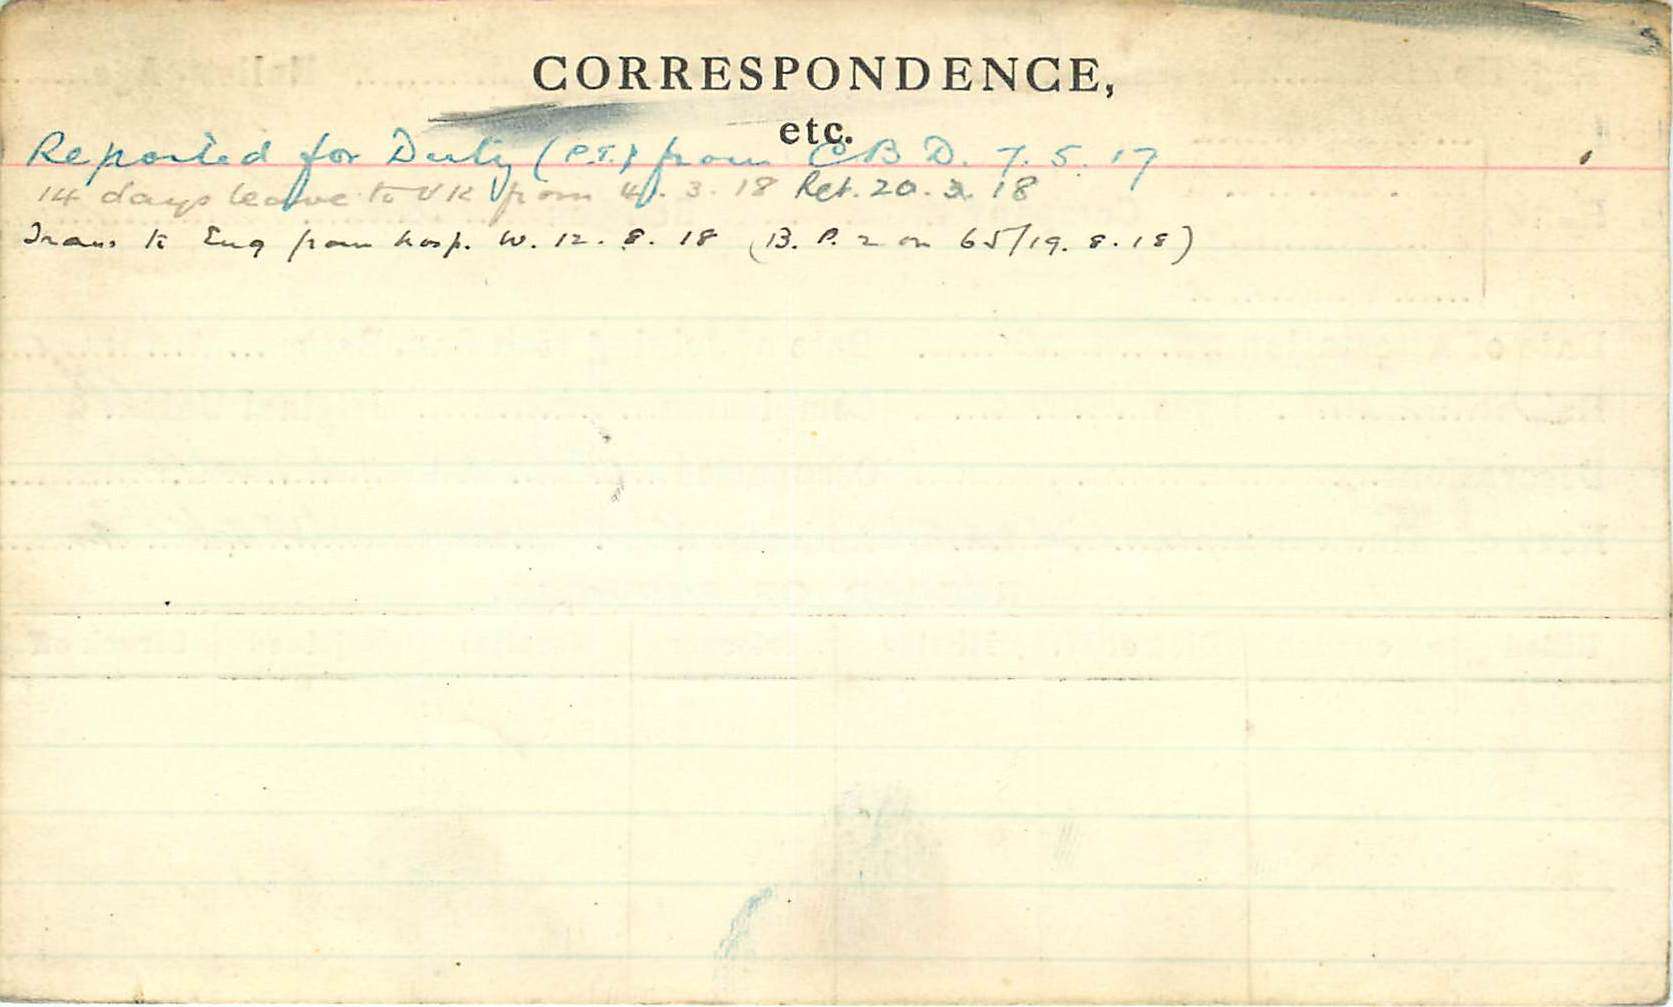 CORRESPONDENCE,
etc.
Reported for Duty (P.T.) from C B D. 7. 5. 17
14 days leave to UK from 4. 3. 18 Ret. 20. 3. 18
Trans to Eng from hosp. W. 12. 8. 18 (B. P. 2 on 65/19. 8. 18)